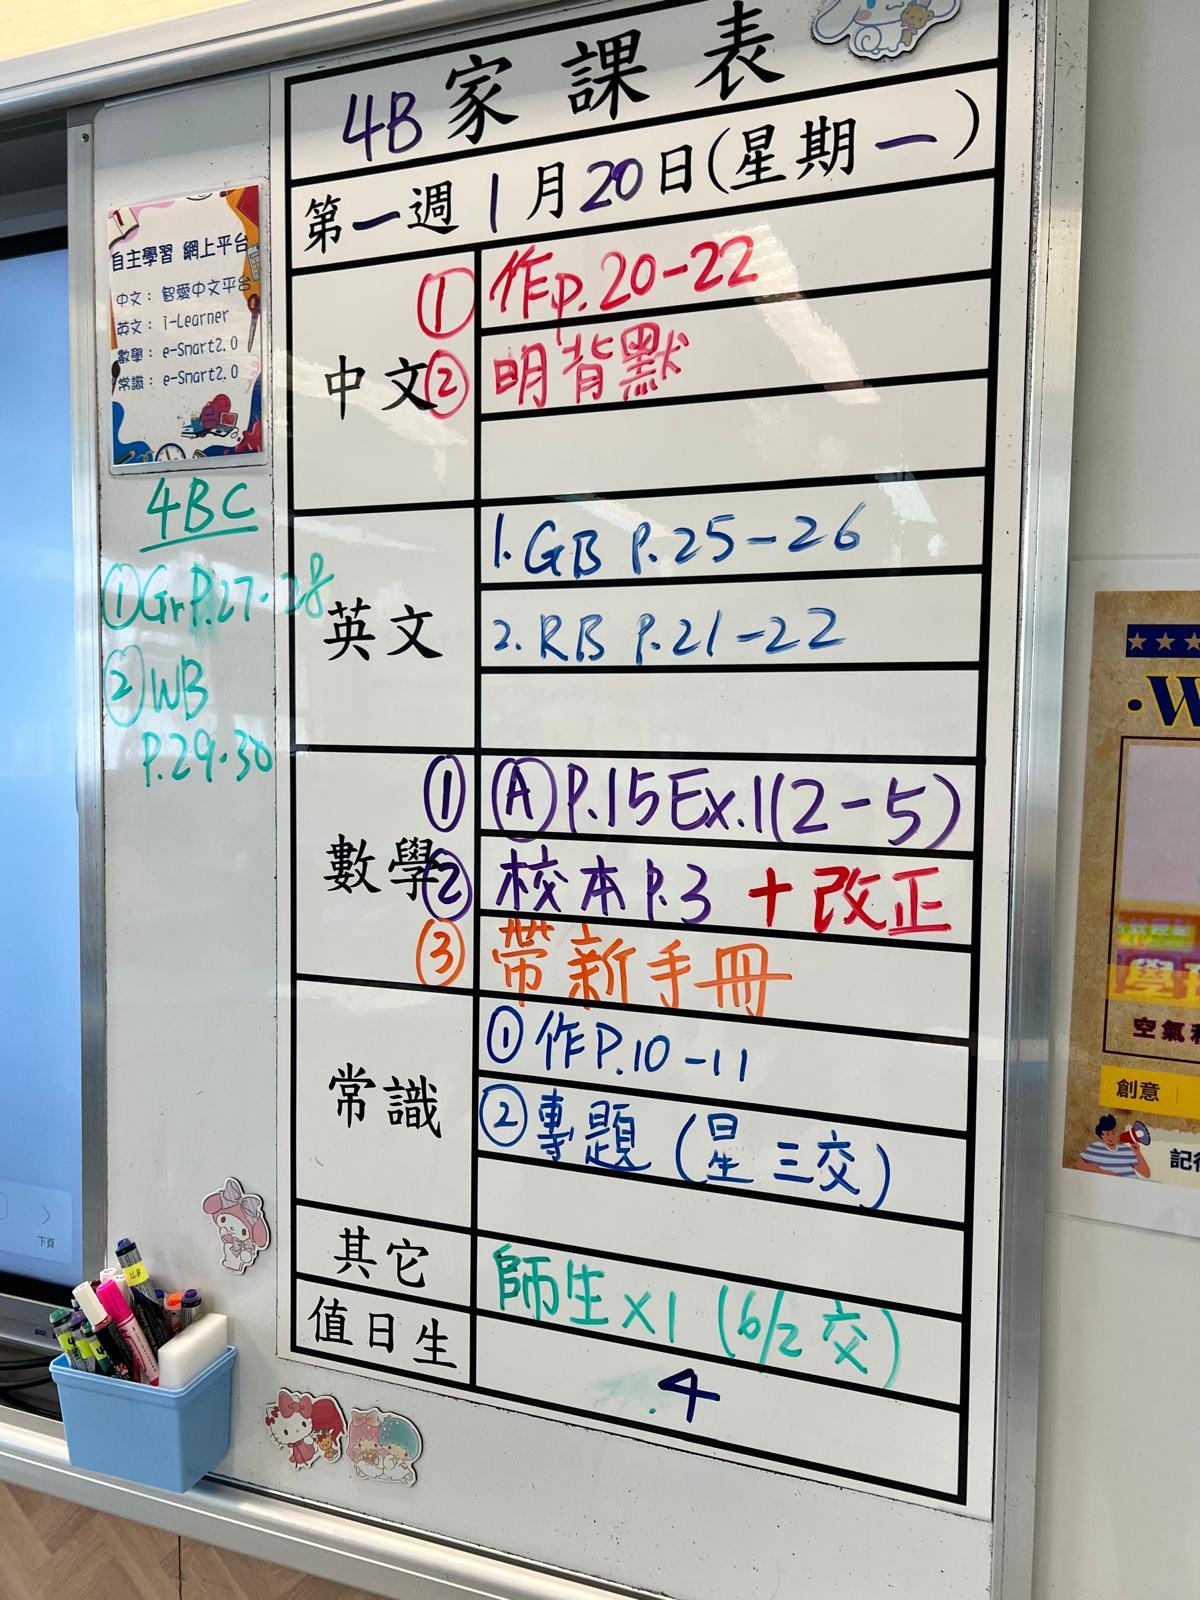 4B家課表
第一週1月20日(星期一)
自主學習 網上平台
中文：智愛中文平台
英文：i-Learner
數學：e-Smart2.0
常識：e-Smart2.0
4BC
①Gr P.27-28
②WB
P.29-30
中文
①作p.20-22
②明背默
英文
1. GB P.25-26
2. RB P.21-22
數學
①Ⓐ P.15 Ex.1(2-5)
②校本P.3 + 改正
③帶新手冊
常識
①作P.10-11
②專題 (星三交)
其它
師生x1 (6/2交)
值日生
4
下頁
·W
空氣
創意